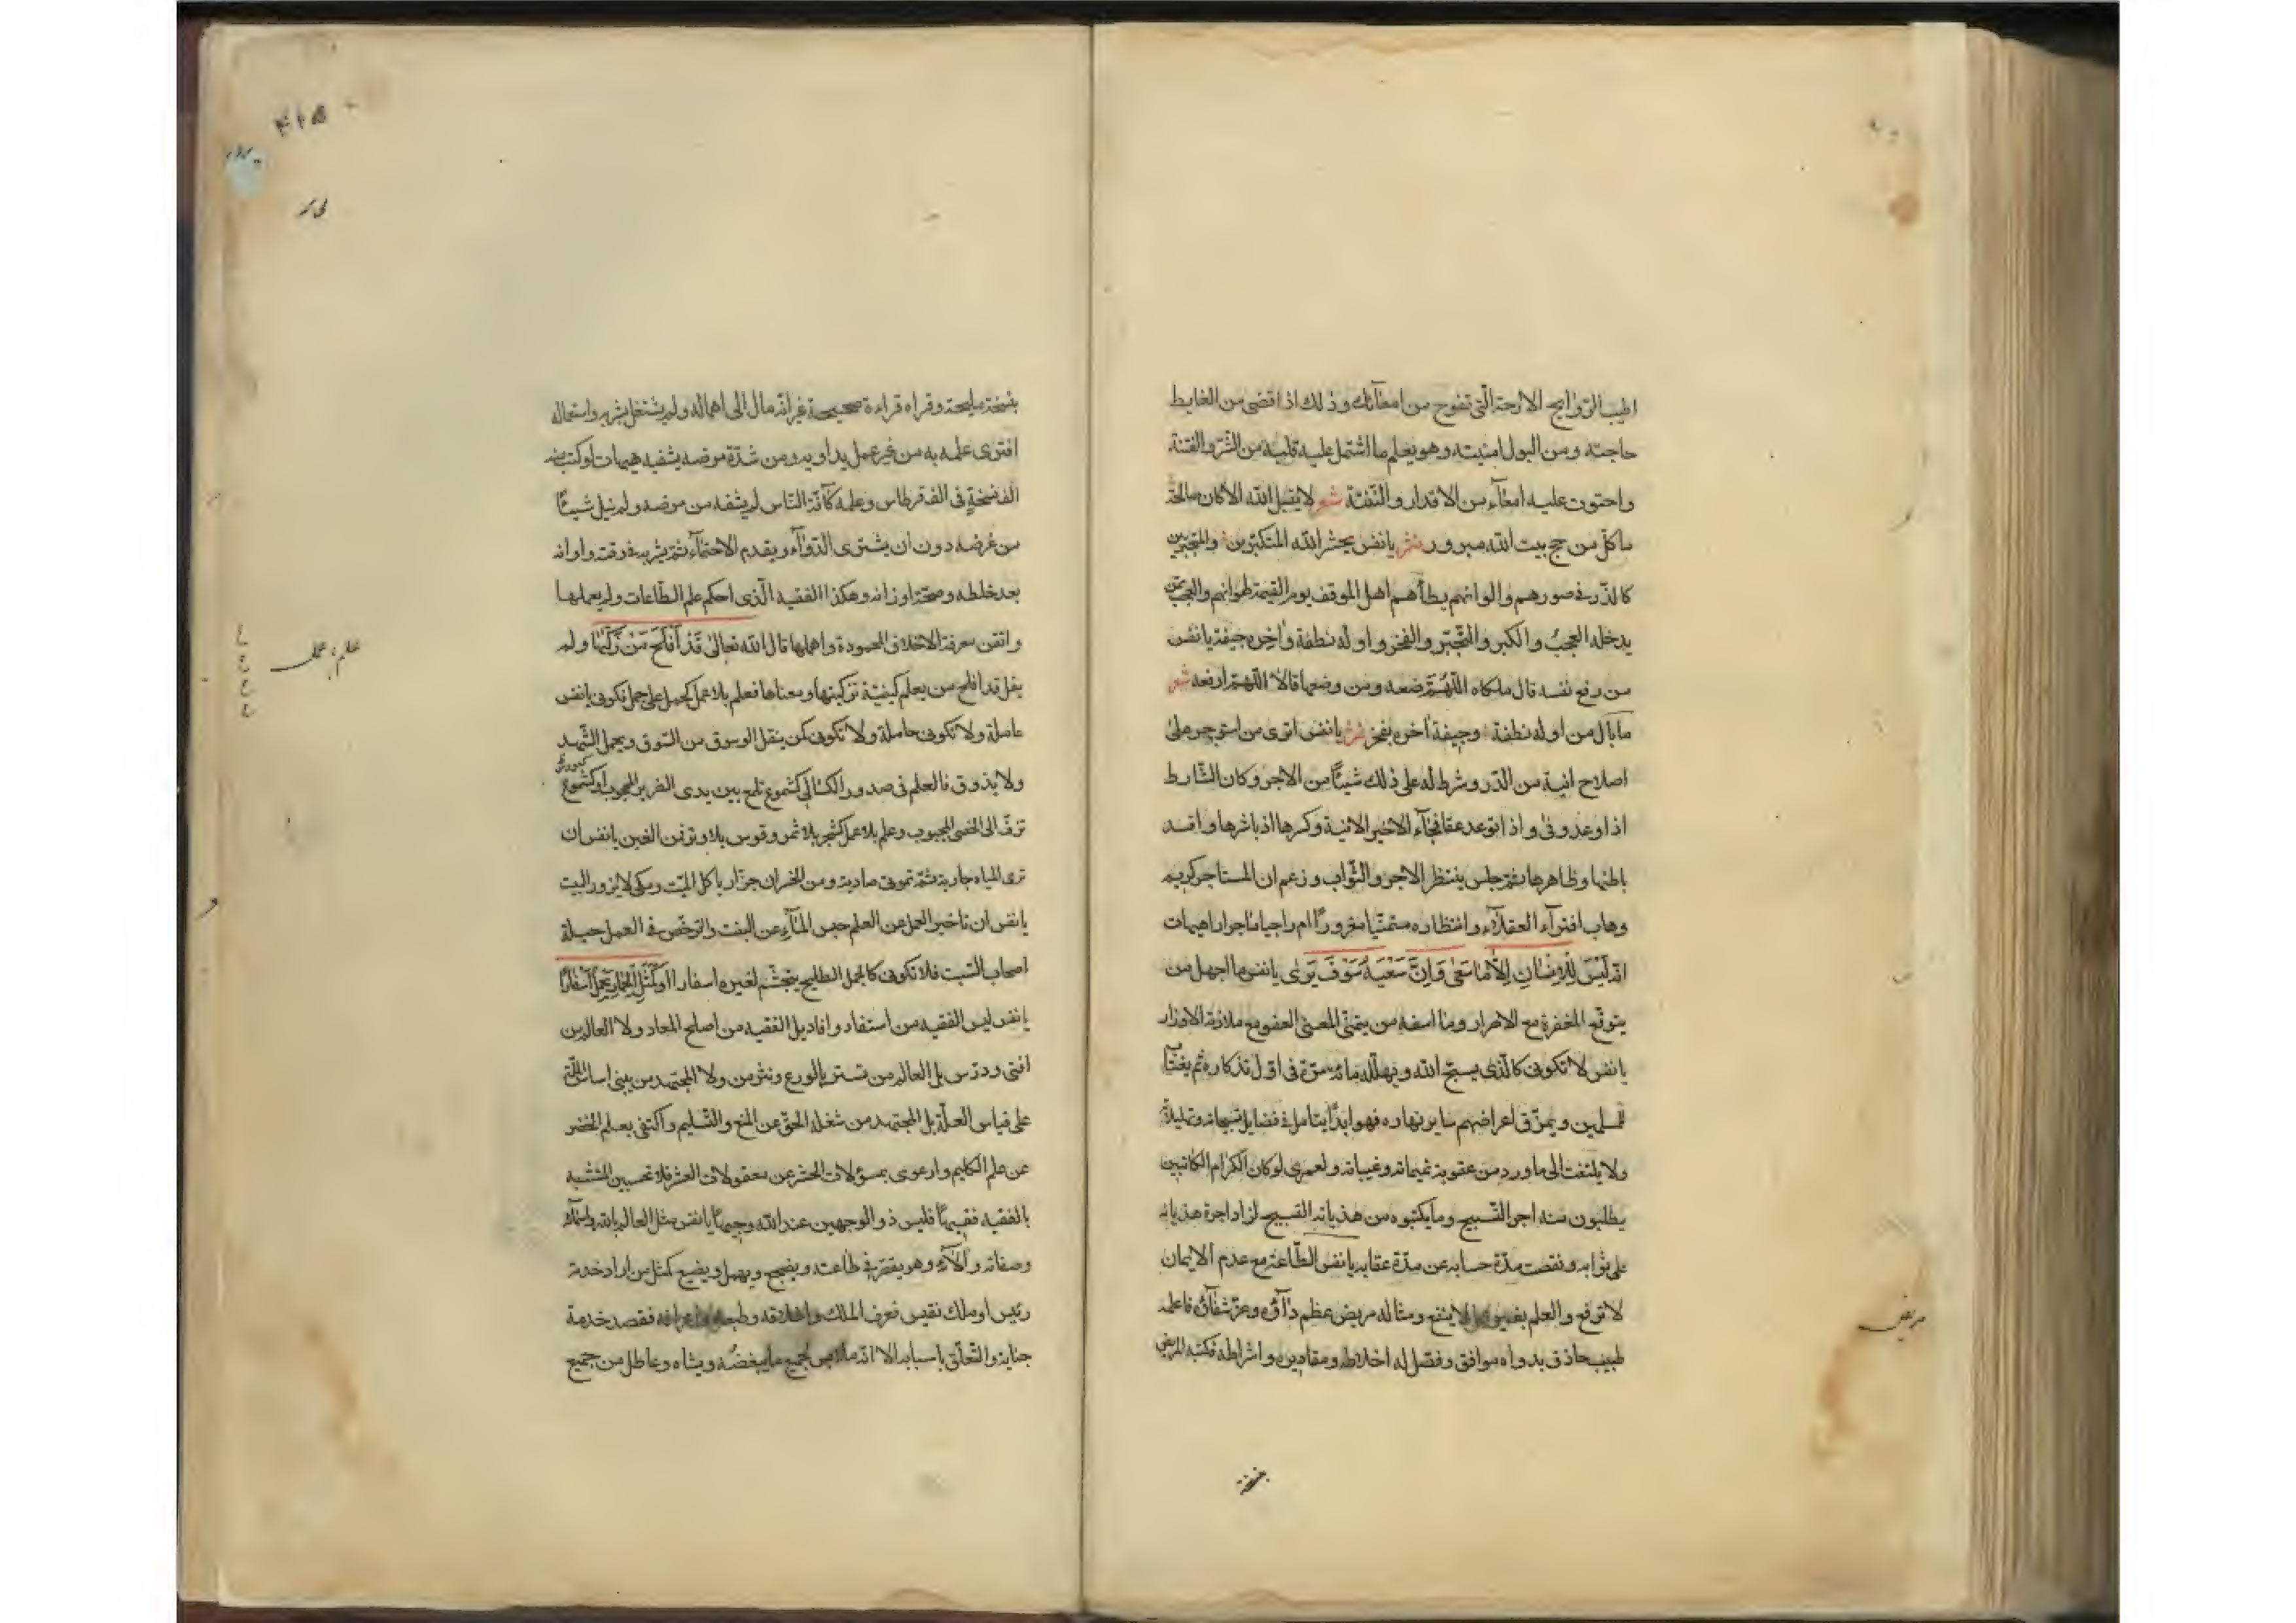 اطيب الروايح الارحة التى تفوح من امعائك وذلك اذا قضى من الغايط
حاجته ومن البول امنيته وهو يعلم ما اشتمل عليه قلبه من الشر والفتنة
واحتوت عليه امعآء من الاقذار والنفثة شعر لا يقبل الله الا كان صالحة
ما كل من حج بيت الله مبرور نثر يا نفس يحشر الله المتكبرين والمتجبرين
كالذر فى صورهم والوانهم يطأهم اهل الموقف يوم القيمة لهوانهم والعجب ممن
يدخله العجب والكبر والتجبر والفخر واوله نطفة واخره جيفة يا نفس
من رفع نفسه قال ملكاه اللهم ضعه ومن وضعها قالا اللهم ارفعه شعر
ما بال من اوله نطفة وجيفة اخره يفخر نثر يا نفس اترى من استوجر على
اصلاح انية من الدر وشرط له على ذلك شيئا من الاجر وكان الشارط
اذا وعد وفى واذا توعد عفا فجآء الاخير الانية وكسرها اذ باشرها وافسد
باطنها وظاهرها ثم جلس ينتظر الاجر والثواب وزعم ان المستاجر كريم
وهاب افترآء العقلآء وانتظاره متمنيا مغرورا ام راجيا ماجورا هيهات
انه ليس للانسان الا ما سعى وان سعيه سوف يرى يا نفس ما اجهل من
يتوقع المغفرة مع الاصرار وما اسفه من يتمنى المعنى العفو مع ملازمة الاوزار
يا نفس لا تكونى كالذى يسبح الله ويهلله مائة مرة فى اول تذكاره ثم يغتاب
المسلمين ويمزق اعراضهم ساير نهاره فهو ابدا يتامل فى فضايل تسبيحاته وتهليلاته
ولا يلتفت الى ما ورد من عقوبة نميماته وغيباته ولعمرى لو كان الكرام الكاتبين
يطلبون منه اجر التسبيح وما يكتبوه من هذيانه القبيح لزاد اجرة هذيانه
على ثوابه ونقصت مدة حسابه عن مدة عقابه يا نفس الطاعة مع عدم الايمان
لا ترفع والعلم بغير عمل لا ينفع ومثاله مريض عظم دآؤه وعز شفآؤه فاعلمه
طبيب حاذق بدواه موافق وفصل له اخلاطه ومقاديره واشراطه فكتبه المريض
بنسخة
مريض
۴۱۵
بنسخة مليحة وقراه قراءة صحيحة غير انه مال الى اهماله ولم يشتغل بشربه واستعماله
افترى علمه به من غير عمل يداويه ومن شدة مرضه يشفيه هيهات لو كتب منه
الف نسخة فى الف قرطاس وعلمه كآفة الناس لم يشفه من مرضه ولم ينل شيئا
من غرضه دون ان يشترى الدوآء ويقدم الاحتمآء ثم يشربه فى وقته واوانه
بعد خلطه وصحة اوزانه وهكذا الفقيه الذى احكم علم الطاعات ولم يعملها
واتقن معرفة الاخلاق المحمودة واهملها قال الله تعالى قد افلح من زكيها ولم
يقل قد افلح من يعلم كيفية تزكيتها ومعناها فعلم بلا عمل كحمل على جمل تكونى يا نفس
عاملة ولا تكونى حاملة ولا تكونى كمن ينقل الوسوق من السوق ويحمل الشهد
ولا يذوق فالعلم فى صدور الكسالى كشموع تلمح بين يدى الضرير المحجوب او كشموع
تزف الى الخصى المجبوب وعلم بلا عمل كشجر بلا ثمر وقوس بلا وتر فمن الغبن يا نفس ان
ترى المياه جارية ثم تموتى صادية ومن الخسران جزار ياكل الميت ومكى لا يزور البيت
يا نفس ان تاخير العمل عن العلم حبس المآء عن النبت والترخص فى العمل حيلة
اصحاب السبت فلا تكونى كالجمل الطليح يتجشم لغيره اسفارا او كمثل الحمار يحمل اسفارا
يا نفس ليس الفقيه من استفاد وافاد بل الفقيه من اصلح المعاد ولا العالم من
افتى ودرس بل العالم من تستر بالورع وتترس ولا المجتهد من يبنى اساس الملة
على قياس العلة بل المجتهد من شغله الحق عن المنع والتسليم واكتفى بعلم الخضر
عن علم الكليم وارعوى بمسؤلات الحشر عن معقولات العشر فلا تحسبين المتشبه
بالفقيه فقيها فليس ذو الوجهين عند الله وجيها يا نفس مثل العالم بالله واسمائه
وصفاته والآئه وهو يفتر فى طاعته ويضجع ويهمل ويضيع كمثل من اراد خدمة
رئيس او ملك نفيس فعرف الملك واخلاقه وطبعه واعراقه فقصد خدمة
جنابه والتعلق باسبابه الا انه ملابس لجميع ما يبغضه ويشناه وعاطل من جميع
علم، عمل